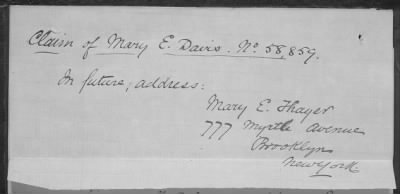 Claim of Mary E. Davis. No. 58,859.
In future, address:
Mary E. Thayer
777 Myrtle Avenue
Brooklyn
New York.